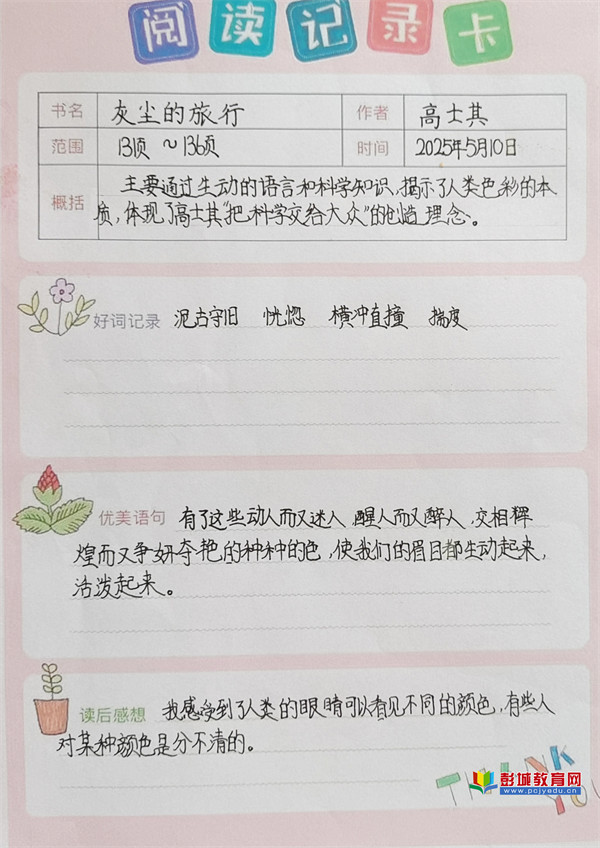 阅读记录卡
书名 灰尘的旅行 作者 高士其
范围 131页～136页 时间 2025年5月10日
概括 主要通过生动的语言和科学知识,揭示了人类色彩的本
质,体现了高士其“把科学交给大众”的创造理念。
好词记录 泥古守旧 恍惚 横冲直撞 揣度
优美语句 有了这些动人而又迷人,醒人而又醉人,交相辉
煌而又争妍夺艳的种种的色,使我们的眉目都生动起来,
活泼起来。
读后感想 我感受到了人类的眼睛可以看见不同的颜色,有些人
对某种颜色是分不清的。
THANK
YOU
彭城教育网
www.pcjyedu.cn